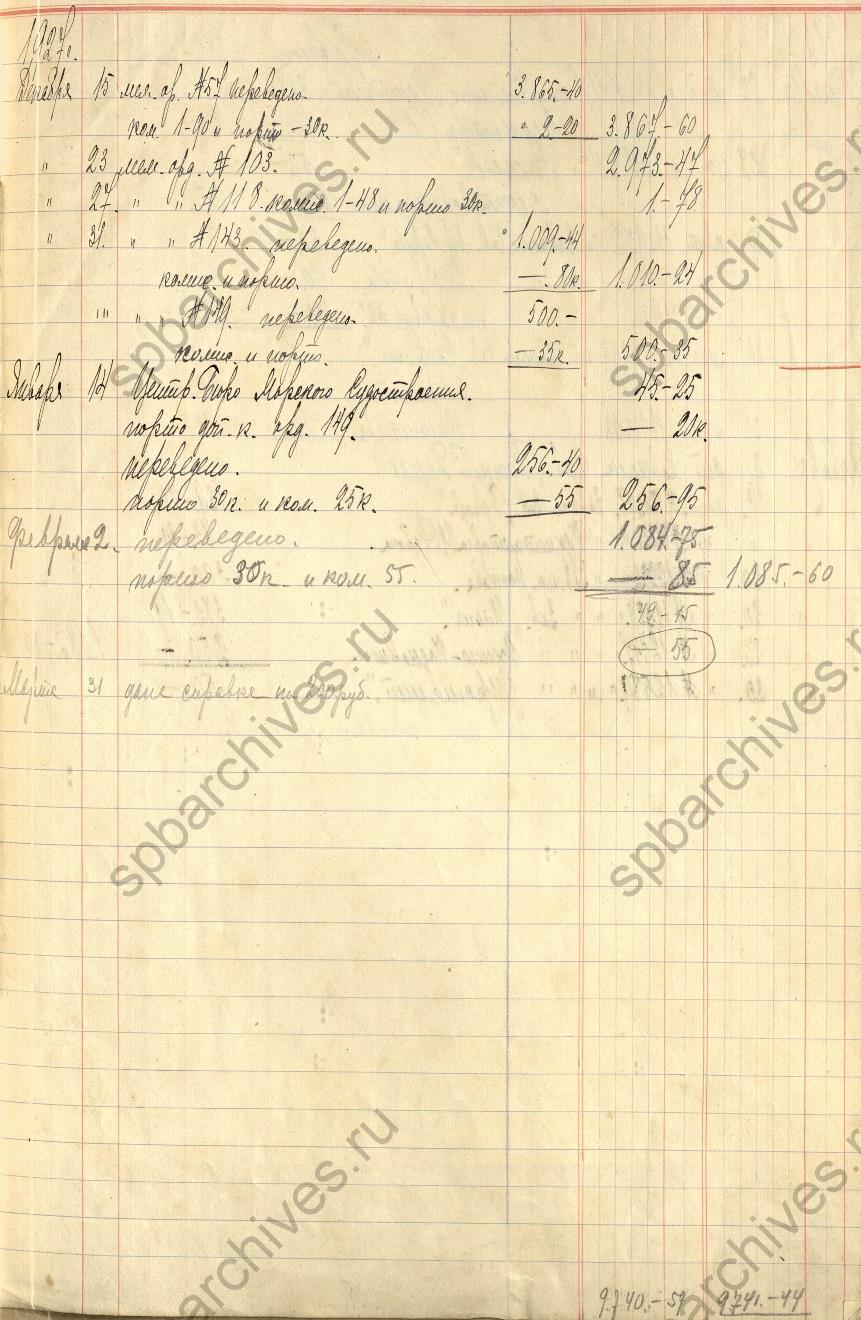 1927г.
Декабря 15 мем. ор. № 57 переведено. 3.865.-40
ком. 1-90 и порто - 30к. " 2-20 3.867-60
" 23 мем. орд. № 103. 2.973.-47
" 27. " " № 118. комис. 1-48 и порто 30к. 1.-78
" 31. " " № 143. переведено. 1.009.-44
комис. и порто. -. 80к. 1.010.-24
" " " " № 149. переведено. 500.-
комис. и порто. - 35к. 500.-35
Января 14 Центр. Бюро Морского Судостроения. 45.-25
порто доп. к. орд. 149. — 20к.
переведено. 256.-40
порто 30к. и ком. 25к. — 55 256.-95
Февраля 2. переведено. 1.084.-75
порто 30к. и ком. 55. — 85 1.085.-60
49.-15
— 55
Марта 31 дана справка на руб.
9.740.-59 9741.-44
spbarchives.ru
spbarchives.ru
spbarchives.ru
spbarchives.ru
spbarchives.ru
spbarchives.ru